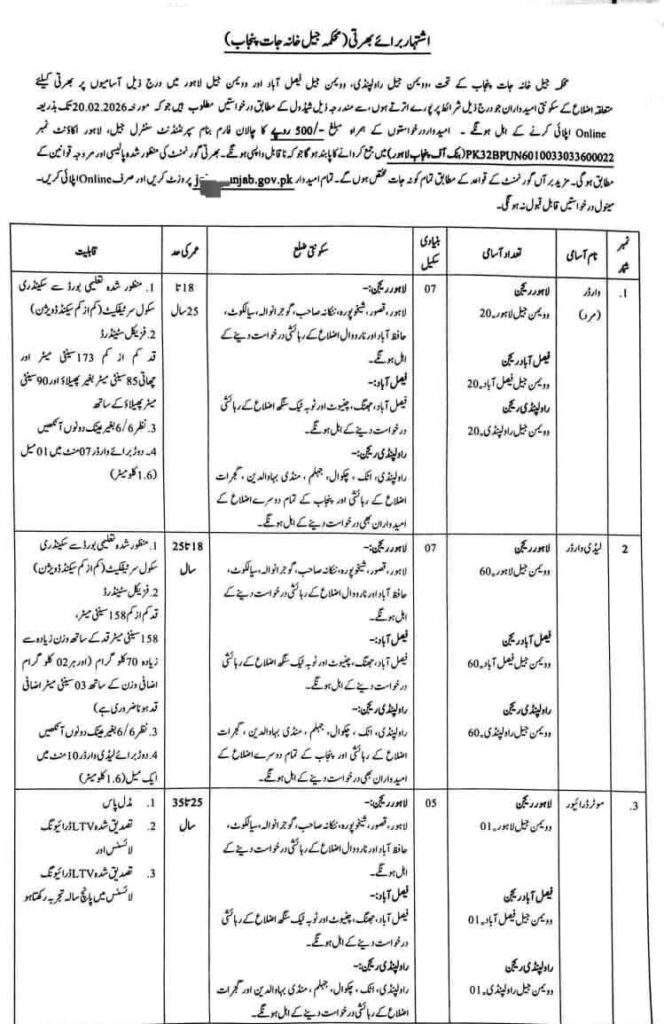 اشتہار برائے بھرتی (محکمہ جیل خانہ جات پنجاب)
محکمہ جیل خانہ جات پنجاب کے تحت، وویمن جیل راولپنڈی، وویمن جیل فیصل آباد اور وویمن جیل لاہور میں درج ذیل آسامیوں پر بھرتی کیلئے
متعلقہ اضلاع کے سکونتی امیدواران جو درج ذیل شرائط پر پورے اترتے ہوں، سے مندرجہ ذیل شیڈول کے مطابق درخواستیں مطلوب ہیں جو کہ مورخہ 20.02.2026 تک بذریعہ
Online اپلائی کرنے کے اہل ہونگے ۔ امیدوار درخواستوں کے ہمراہ مبلغ -/500 روپے کا چالان فارم بنام سپرنٹنڈنٹ سنٹرل جیل، لاہور اکاؤنٹ نمبر
PK32BPUN6010033033600022(بنک آف پنجاب لاہور) میں جمع کروانے کا پابند ہوگا جو کہ ناقابل واپسی ہونگے۔ بھرتی گورنمنٹ کی منظور شدہ پالیسی اور مروجہ قوانین کے
مطابق ہوگی۔ مزید برآں گورنمنٹ کے قواعد کے مطابق تمام کوٹہ جات مختص ہوں گے۔ تمام امیدوار unjab.gov.pk پر وزٹ کریں اور صرف Online اپلائی کریں۔
مینول درخواستیں قابل قبول نہ ہونگی۔
نمبر شمار
نام آسامی
تعداد آسامی
بنیادی سکیل
سکونتی ضلع
عمر کی حد
قابلیت
1.
وارڈر
(مرد)
لاہور ریجن
وویمن جیل لاہور۔20
فیصل آباد ریجن
وویمن جیل فیصل آباد۔20
راولپنڈی ریجن
وویمن جیل راولپنڈی۔20
07
لاہور ریجن:-
لاہور، قصور، شیخوپورہ، ننکانہ صاحب، گوجرانوالہ، سیالکوٹ،
حافظ آباد اور نارووال اضلاع کے رہائشی درخواست دینے کے
اہل ہونگے۔
فیصل آباد:-
فیصل آباد، جھنگ، چنیوٹ اور ٹوبہ ٹیک سنگھ اضلاع کے رہائشی
درخواست دینے کے اہل ہونگے۔
راولپنڈی ریجن:-
راولپنڈی، اٹک، چکوال، جہلم، منڈی بہاوالدین، گجرات
اضلاع کے رہائشی اور پنجاب کے تمام دوسرے اضلاع کے
امیدواران بھی درخواست دینے کے اہل ہونگے۔
18 تا
25 سال
1. منظور شدہ تعلیمی بورڈ سے سکینڈری
سکول سرٹیفکیٹ (کم از کم سیکنڈ ڈویژن)
2. فزیکل سٹینڈرڈ
قد کم از کم 173 سینٹی میٹر اور
چھاتی 85 سینٹی میٹر بغیر پھیلاؤ اور 90 سینٹی
میٹر پھیلاؤ کے ساتھ
3. نظر 6/6 بغیر عینک دونوں آنکھیں
4۔ دوڑ برائے وارڈر 07 منٹ میں 01 میل
(1.6 کلومیٹر)
2
لیڈی وارڈر
لاہور ریجن
وویمن جیل لاہور۔60
فیصل آباد ریجن
وویمن جیل فیصل آباد۔60
راولپنڈی ریجن
وویمن جیل راولپنڈی۔60
07
لاہور ریجن:-
لاہور، قصور، شیخوپورہ، ننکانہ صاحب، گوجرانوالہ، سیالکوٹ،
حافظ آباد اور نارووال اضلاع کے رہائشی درخواست دینے کے
اہل ہونگے۔
فیصل آباد:-
فیصل آباد، جھنگ، چنیوٹ اور ٹوبہ ٹیک سنگھ اضلاع کے رہائشی
درخواست دینے کے اہل ہونگے۔
راولپنڈی ریجن:-
راولپنڈی، اٹک، چکوال، جہلم، منڈی بہاوالدین، گجرات
اضلاع کے رہائشی اور پنجاب کے تمام دوسرے اضلاع کے
امیدواران بھی درخواست دینے کے اہل ہونگے۔
18 تا 25
سال
1. منظور شدہ تعلیمی بورڈ سے سکینڈری
سکول سرٹیفکیٹ (کم از کم سیکنڈ ڈویژن)
2. فزیکل سٹینڈرڈ
قد کم از کم 158 سینٹی میٹر،
158 سینٹی میٹر قد کے ساتھ وزن زیادہ سے
زیادہ 70 کلو گرام (اور ہر 02 کلو گرام
اضافی وزن کے ساتھ 03 سینٹی میٹر اضافی
قد ہونا ضروری ہے)
3. نظر 6/6 بغیر عینک دونوں آنکھیں
4. دوڑ برائے لیڈی وارڈر 10 منٹ میں
ایک میل (1.6 کلومیٹر)
3.
موٹر ڈرائیور
لاہور ریجن
وویمن جیل لاہور۔01
فیصل آباد ریجن
وویمن جیل فیصل آباد۔01
راولپنڈی ریجن
وویمن جیل راولپنڈی۔01
05
لاہور ریجن:-
لاہور، قصور، شیخوپورہ، ننکانہ صاحب، گوجرانوالہ، سیالکوٹ،
حافظ آباد اور نارووال اضلاع کے رہائشی درخواست دینے کے
اہل ہونگے۔
فیصل آباد:-
فیصل آباد، جھنگ، چنیوٹ اور ٹوبہ ٹیک سنگھ اضلاع کے رہائشی
درخواست دینے کے اہل ہونگے۔
راولپنڈی ریجن:-
راولپنڈی، اٹک، چکوال، جہلم، منڈی بہاوالدین اور گجرات
اضلاع کے رہائشی اور پنجاب کے تمام دوسرے اضلاع کے
25 تا 35
سال
1. مڈل پاس
2. تصدیق شدہ LTV ڈرائیونگ
لائسنس اور
3. تصدیق شدہ LTV ڈرائیونگ
لائسنس میں پانچ سالہ تجربہ رکھتا ہو